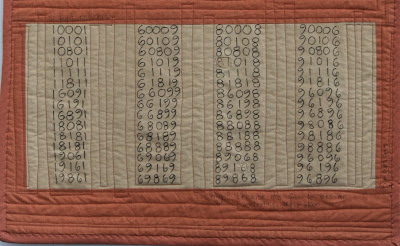 10001 60009 80008 90006
10101 60109 80108 90106
10801 60809 80808 90806
11011 61019 81018 91016
11111 61119 81118 91116
11811 61819 81818 91816
16091 66099 86098 96096
16191 66199 86198 96196
16891 66899 86898 96896
18081 68089 88088 98086
18181 68189 88188 98186
18881 68889 88888 98886
19061 69069 89068 96096
19161 69169 89168 96196
19861 69869 89868 96896